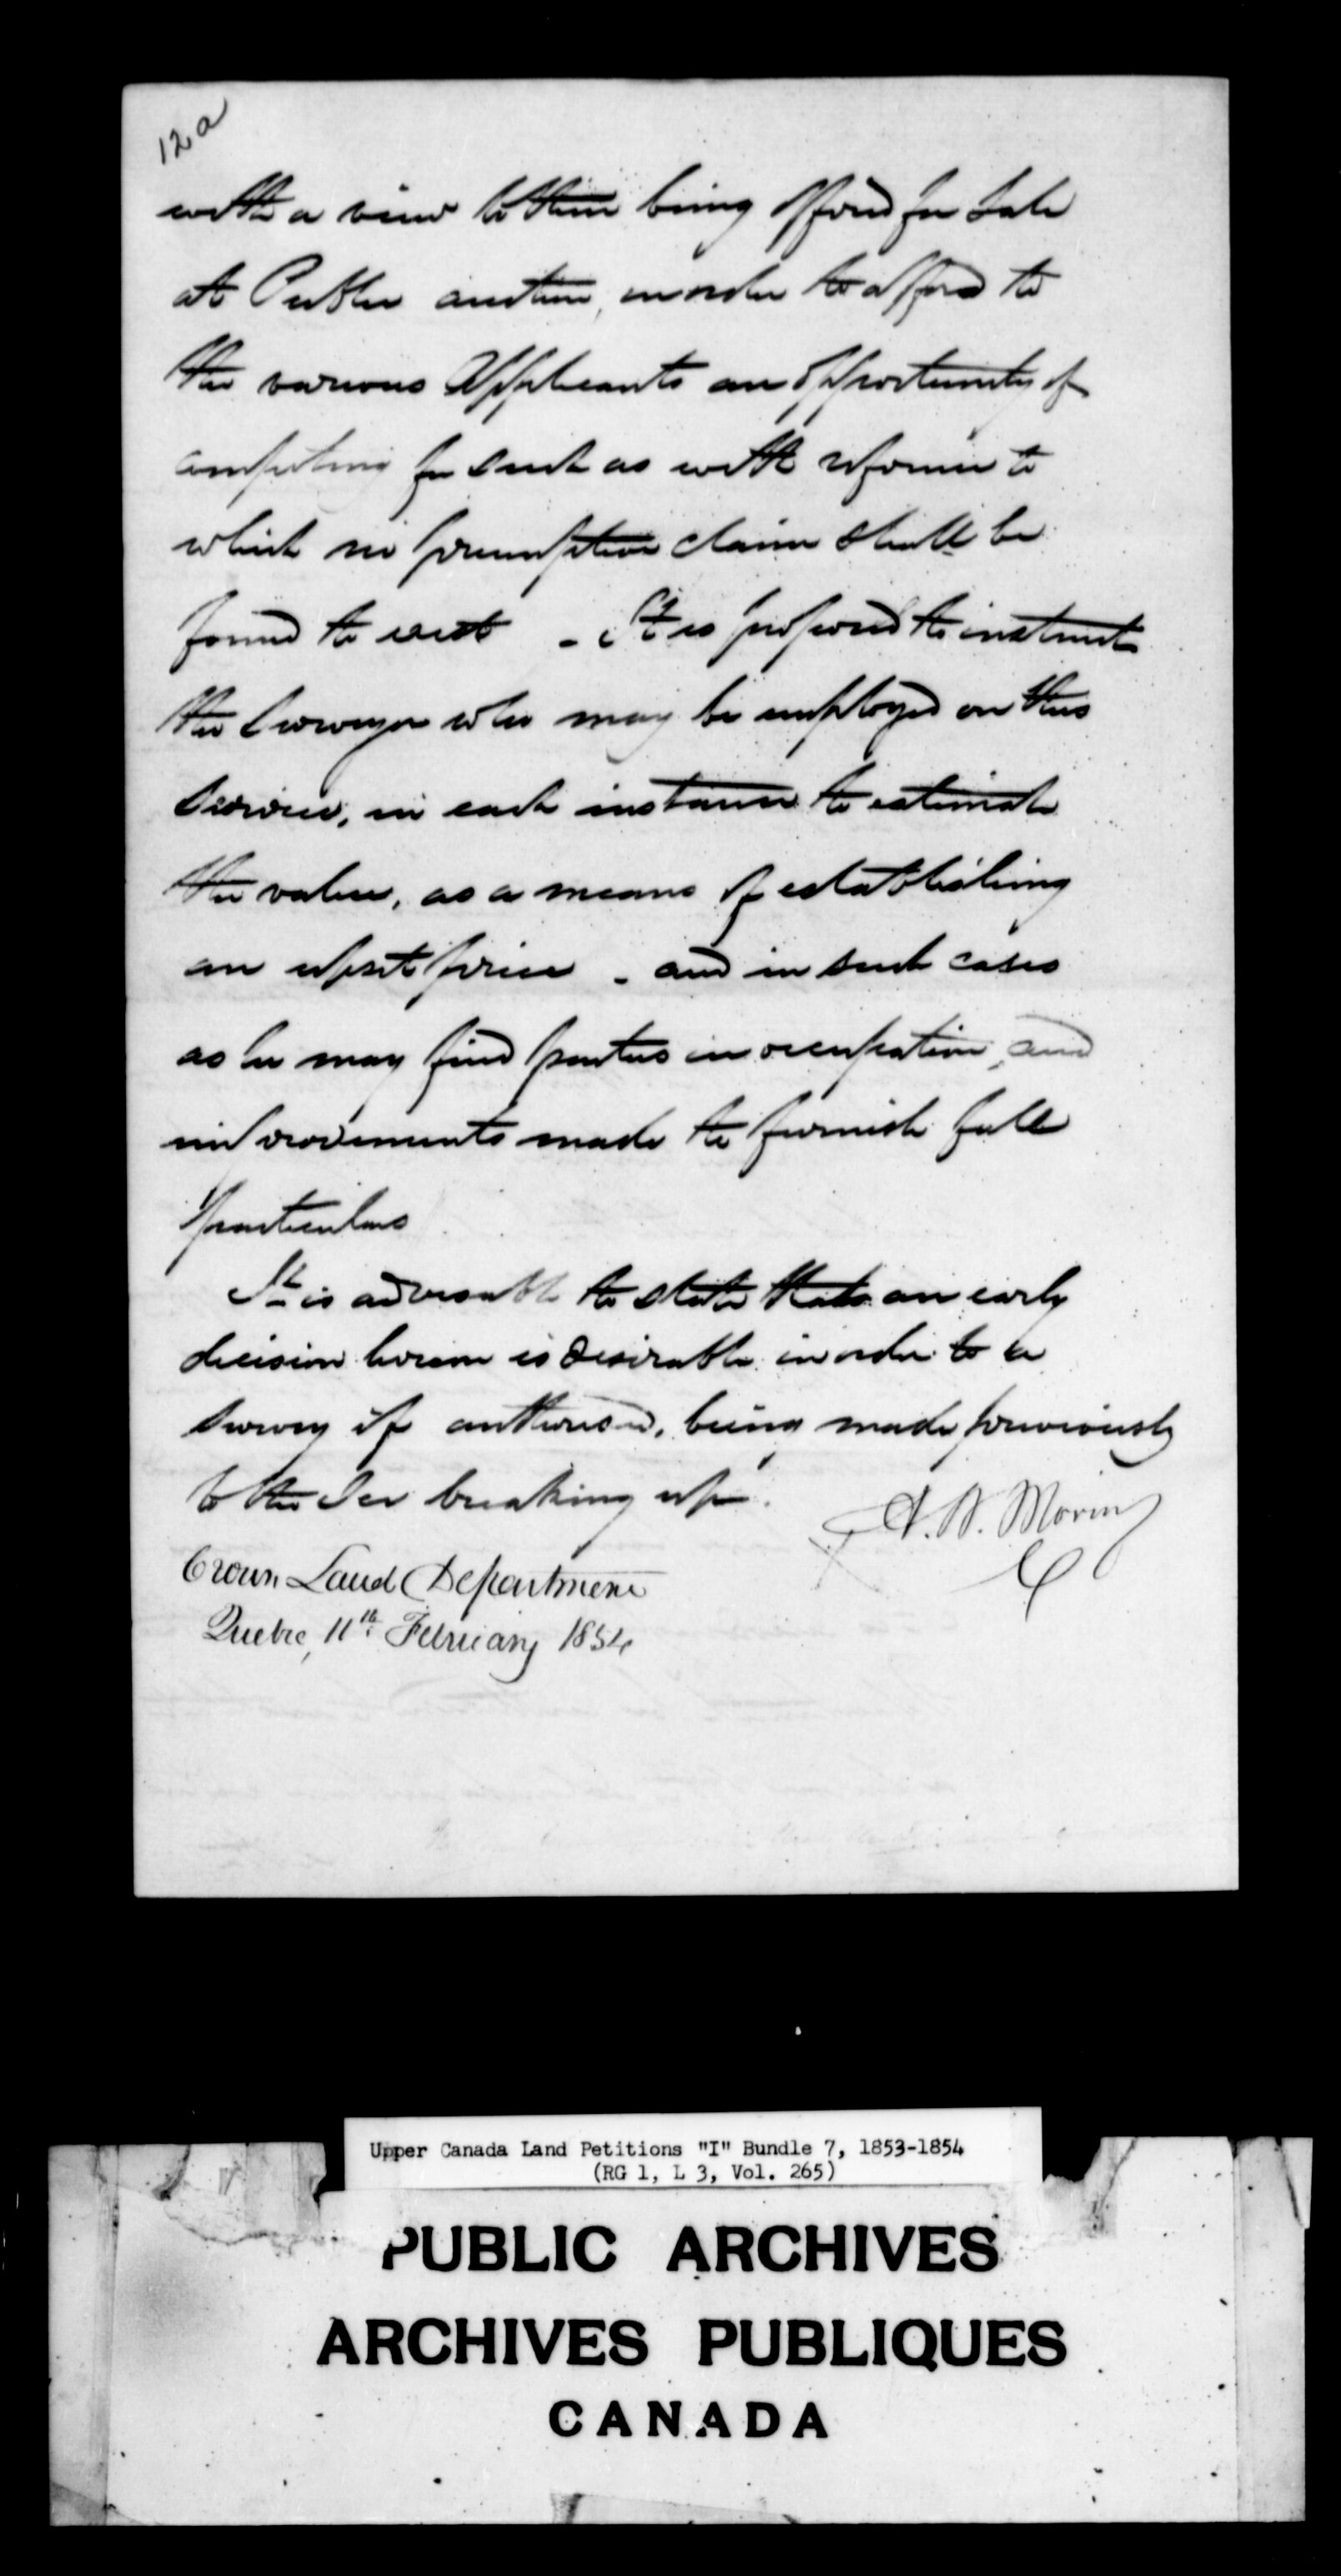 12a
with a view to their being offered for Sale
at Public auction, in order to afford to
the various Applicants an opportunity of
competing for such as with reference to
which no preemption claim shall be
found to exist - It is proposed to instruct
the Surveyor who may be employed on this
Service, in each instance to estimate
the value, as a means of establishing
an upset price - and in such cases
as he may find parties in occupation, and
improvements made to furnish full
particulars
It is advisable to state that an early
decision hereon is desirable in order to a
Survey if authorised, being made previously
to the Ice breaking up.
A. N. Morin
Crown Land Department
Quebec, 11th February 1854
Upper Canada Land Petitions "I" Bundle 7, 1853-1854
(RG 1, L 3, Vol. 265)
PUBLIC ARCHIVES
ARCHIVES PUBLIQUES
CANADA